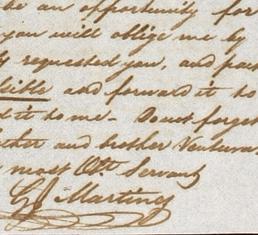 be an opportunity for
you will oblige me by
requested you, and
and forward it to
it to me - Do not forget
and brother Ventura
most Obt. Servant
Martinez